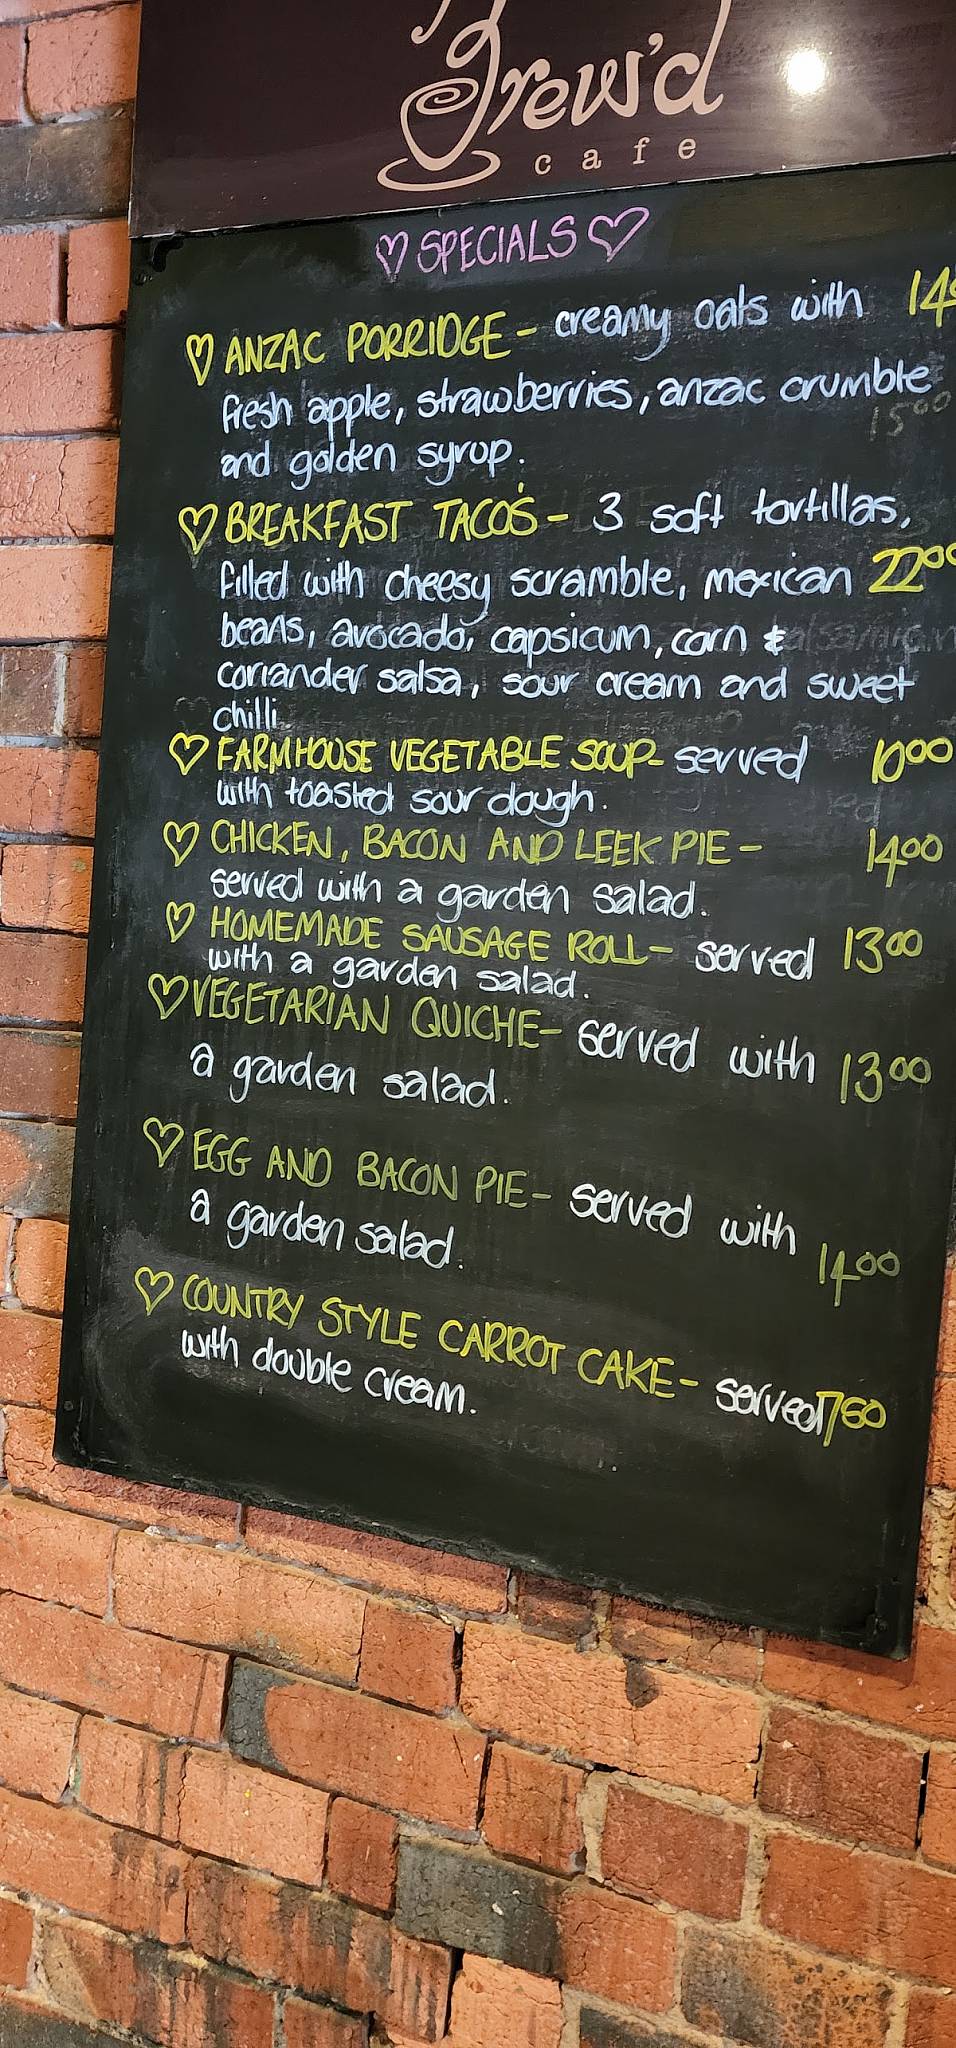 Brew'd
cafe
♡ SPECIALS ♡
♡ ANZAC PORRIDGE - creamy oats with 14
fresh apple, strawberries, anzac crumble
1500
and golden syrup.
♡ BREAKFAST TACO'S - 3 soft tortillas,
filled with cheesy scramble, mexican 2200
beans, avocado, capsicum, corn &
coriander salsa, sour cream and sweet
chilli
♡ FARMHOUSE VEGETABLE SOUP - served 1000
with toasted sour dough.
♡ CHICKEN, BACON AND LEEK PIE - 1400
served with a garden salad.
♡ HOMEMADE SAUSAGE ROLL - served 1300
with a garden salad.
♡ VEGETARIAN QUICHE - served with 1300
a garden salad.
♡ EGG AND BACON PIE - served with 1400
a garden salad.
♡ COUNTRY STYLE CARROT CAKE - served 750
with double cream.